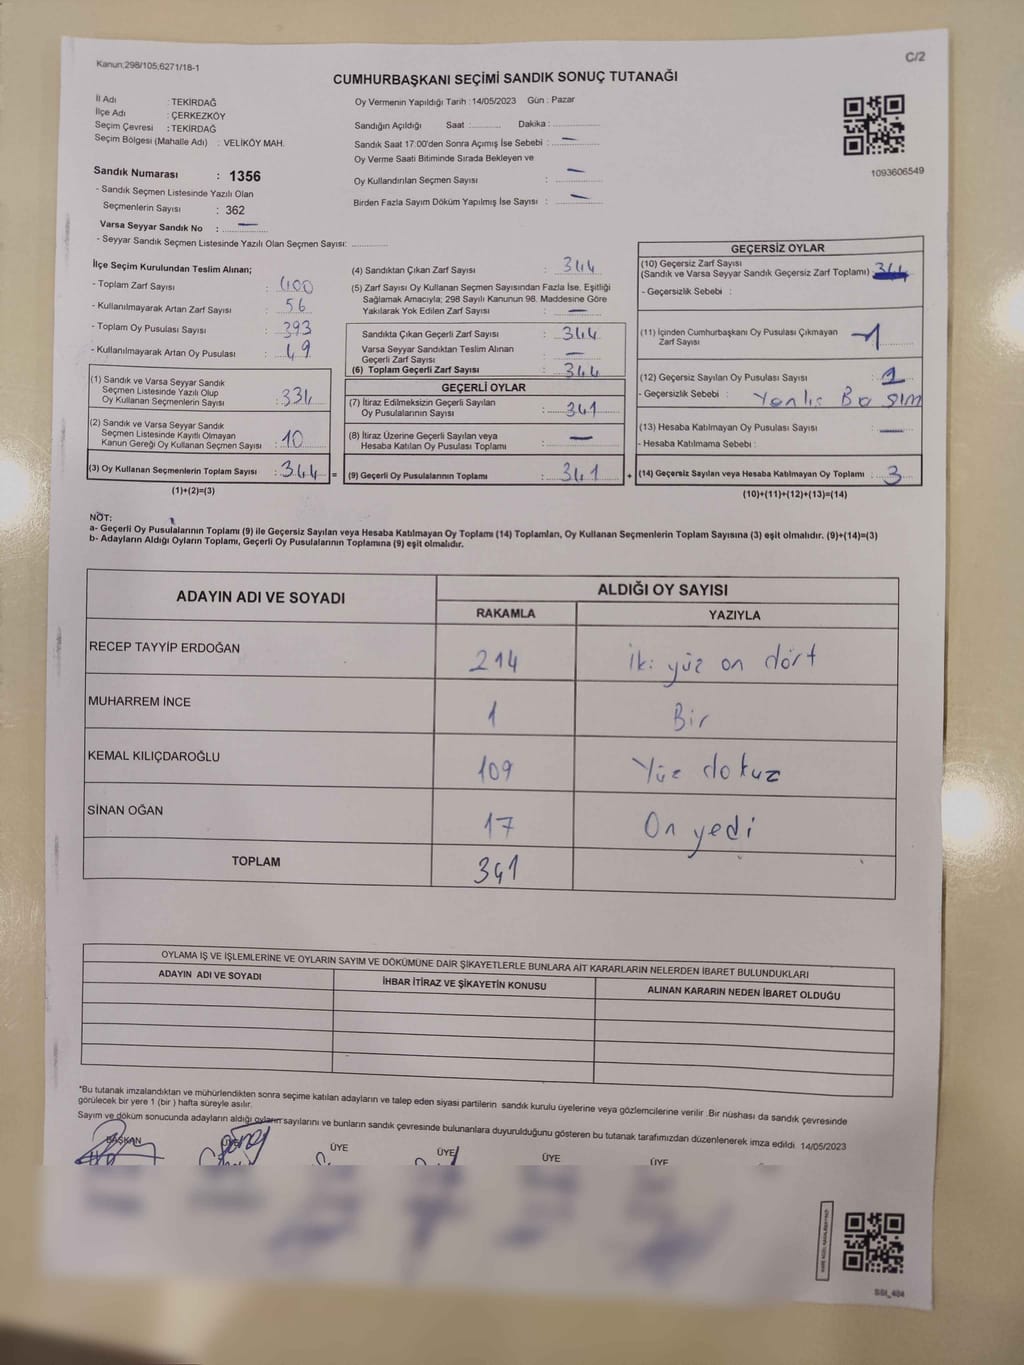 Kanun;298/105;6271/18-1
C/2
CUMHURBAŞKANI SEÇİMİ SANDIK SONUÇ TUTANAĞI
İl Adı : TEKİRDAĞ
İlçe Adı : ÇERKEZKÖY
Seçim Çevresi : TEKİRDAĞ
Seçim Bölgesi (Mahalle Adı) : VELİKÖY MAH.
Sandık Numarası : 1356
- Sandık Seçmen Listesinde Yazılı Olan
Seçmenlerin Sayısı : 362
Varsa Seyyar Sandık No : —
- Seyyar Sandık Seçmen Listesinde Yazılı Olan Seçmen Sayısı: ............
Oy Vermenin Yapıldığı Tarih : 14/05/2023 Gün : Pazar
Sandığın Açıldığı Saat :.......... Dakika : ...............
Sandık Saat 17:00'den Sonra Açımış İse Sebebi : —
Oy Verme Saati Bitiminde Sırada Bekleyen ve
Oy Kullandırılan Seçmen Sayısı : —
Birden Fazla Sayım Döküm Yapılmış İse Sayısı : —
1093606549
İlçe Seçim Kurulundan Teslim Alınan;
- Toplam Zarf Sayısı : 400
- Kullanılmayarak Artan Zarf Sayısı : 56
- Toplam Oy Pusulası Sayısı : 393
- Kullanılmayarak Artan Oy Pusulası : 49
(1) Sandık ve Varsa Seyyar Sandık
Seçmen Listesinde Yazılı Olup
Oy Kullanan Seçmenlerin Sayısı : 334
(2) Sandık ve Varsa Seyyar Sandık
Seçmen Listesinde Kayıtlı Olmayan
Kanun Gereği Oy Kullanan Seçmen Sayısı : 10
(3) Oy Kullanan Seçmenlerin Toplam Sayısı : 344 =
(1)+(2)=(3)
(4) Sandıktan Çıkan Zarf Sayısı : 344
(5) Zarf Sayısı Oy Kullanan Seçmen Sayısından Fazla İse, Eşitliği
Sağlamak Amacıyla; 298 Sayılı Kanunun 98. Maddesine Göre
Yakılarak Yok Edilen Zarf Sayısı : —
Sandıkta Çıkan Geçerli Zarf Sayısı : 344
Varsa Seyyar Sandıktan Teslim Alınan
Geçerli Zarf Sayısı : —
(6) Toplam Geçerli Zarf Sayısı : 344
GEÇERLİ OYLAR
(7) İtiraz Edilmeksizin Geçerli Sayılan
Oy Pusulalarının Sayısı : 341
(8) İtiraz Üzerine Geçerli Sayılan veya
Hesaba Katılan Oy Pusulası Toplamı : —
(9) Geçerli Oy Pusulalarının Toplamı : 341 +
GEÇERSİZ OYLAR
(10) Geçersiz Zarf Sayısı
(Sandık ve Varsa Seyyar Sandık Geçersiz Zarf Toplamı)
- Geçersizlik Sebebi :
(11) İçinden Cumhurbaşkanı Oy Pusulası Çıkmayan
Zarf Sayısı 1
(12) Geçersiz Sayılan Oy Pusulası Sayısı : 2
- Geçersizlik Sebebi : Yanlış Basım
(13) Hesaba Katılmayan Oy Pusulası Sayısı : —
- Hesaba Katılmama Sebebi :
(14) Geçersiz Sayılan veya Hesaba Katılmayan Oy Toplamı : 3
(10)+(11)+(12)+(13)=(14)
NOT:
a- Geçerli Oy Pusulalarının Toplamı (9) ile Geçersiz Sayılan veya Hesaba Katılmayan Oy Toplamı (14) Toplamları, Oy Kullanan Seçmenlerin Toplam Sayısına (3) eşit olmalıdır. (9)+(14)=(3)
b- Adayların Aldığı Oyların Toplamı, Geçerli Oy Pusulalarının Toplamına (9) eşit olmalıdır.
ADAYIN ADI VE SOYADI ALDIĞI OY SAYISI
RAKAMLA YAZIYLA
RECEP TAYYİP ERDOĞAN 214 iki yüz on dört
MUHARREM İNCE 1 Bir
KEMAL KILIÇDAROĞLU 109 Yüz dokuz
SİNAN OĞAN 17 On yedi
TOPLAM 341
OYLAMA İŞ VE İŞLEMLERİNE VE OYLARIN SAYIM VE DÖKÜMÜNE DAİR ŞİKAYETLERLE BUNLARA AİT KARARLARIN NELERDEN İBARET BULUNDUKLARI
ADAYIN ADI VE SOYADI İHBAR İTİRAZ VE ŞİKAYETİN KONUSU ALINAN KARARIN NEDEN İBARET OLDUĞU
*Bu tutanak imzalandıktan ve mühürlendikten sonra seçime katılan adayların ve talep eden siyasi partilerin sandık kurulu üyelerine veya gözlemcilerine verilir .Bir nüshası da sandık çevresinde
görülecek bir yere 1 (bir ) hafta süreyle asılır.
Sayım ve döküm sonucunda adayların aldığı oyların sayılarını ve bunların sandık çevresinde bulunanlara duyurulduğunu gösteren bu tutanak tarafımızdan düzenlenerek imza edildi. 14/05/2023
BAŞKAN ÜYE ÜYE ÜYE ÜYE ÜYE